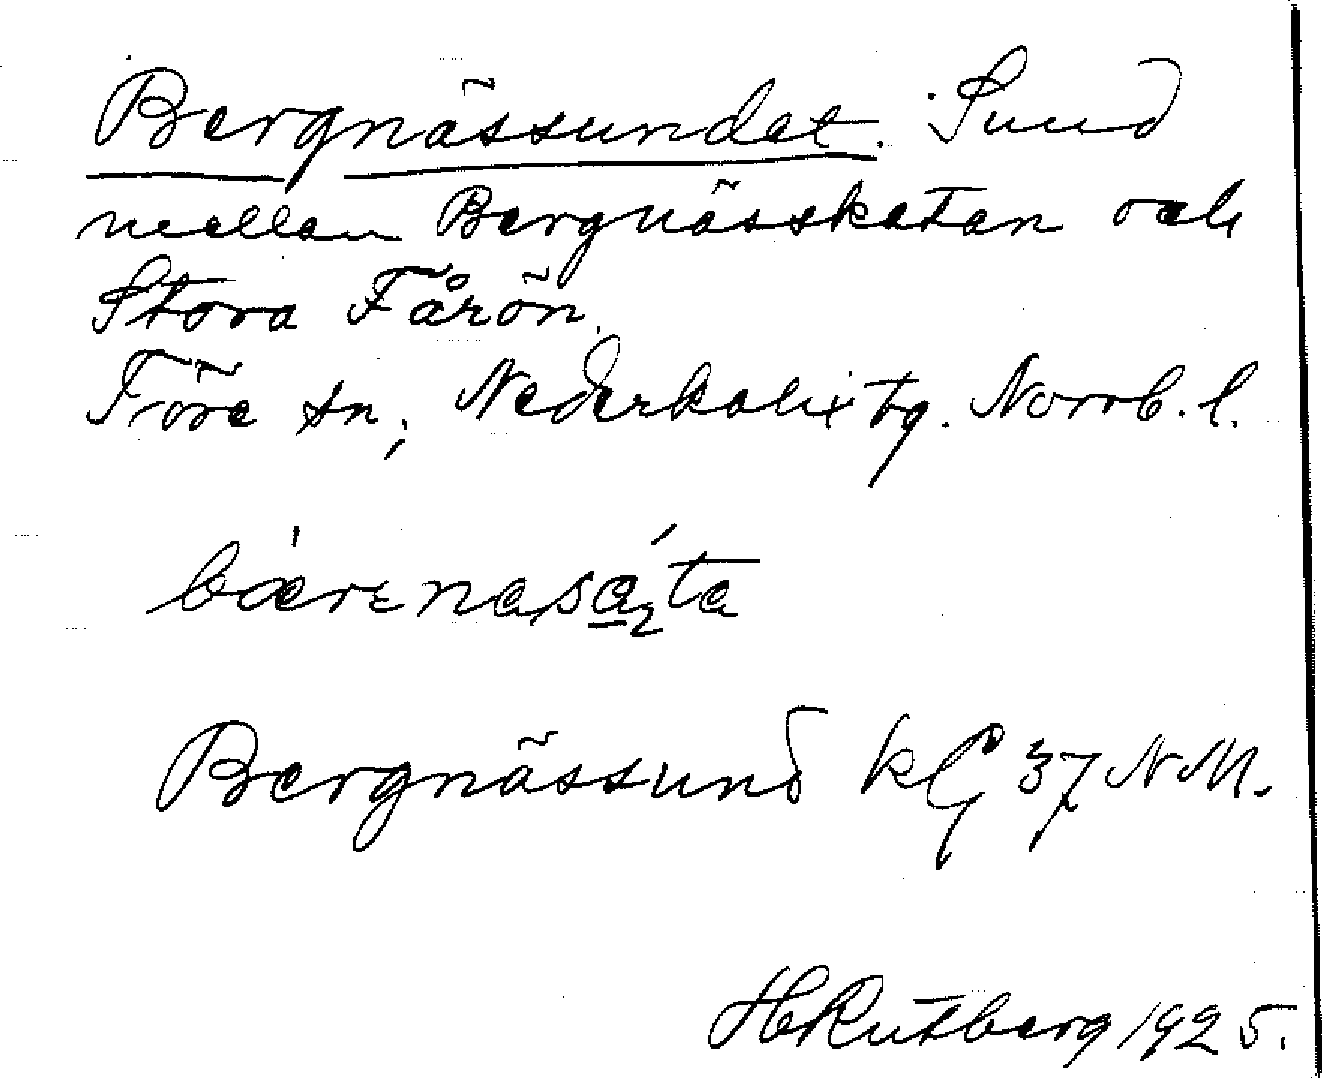 Bergnässundet. Sund
mellan Bergnässkatan och
Stora Fårön.
Töre sn, Nederkalix tg. Norrb. l.
Bergnässund 37 N.M.
H Rutberg 1925.